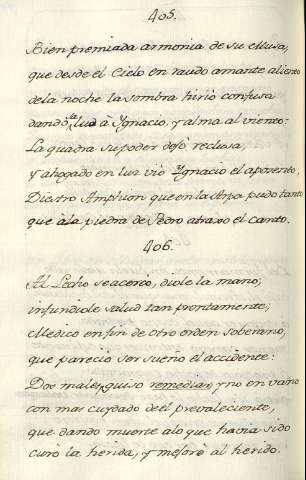 405.
Bien premiada armonia de su Musa,
que desde el Cielo en raudo amante aliento
dela noche la sombra hirió confusa
dando luz à Ygnacio, y alma al viento:
La quadra su poder dexó reclusa,
y ahogado en luz vió Ygnacio el aposento,
Diestro Amphion que en la Arpa pudo tanto
que à la piedra de Pedro atraxo el canto.
406.
Al Lecho se acercó, diole la mano;
infundiole salud tan prontamente;
Medico en fin de otro orden soberano,
que pareció ser sueño el accidente:
Dos males quiso remediar, y no en vano
con mas cuydado de el prevaleciente,
que dando muerte alo que havia sido
curó la herida, y mejoró al herido.